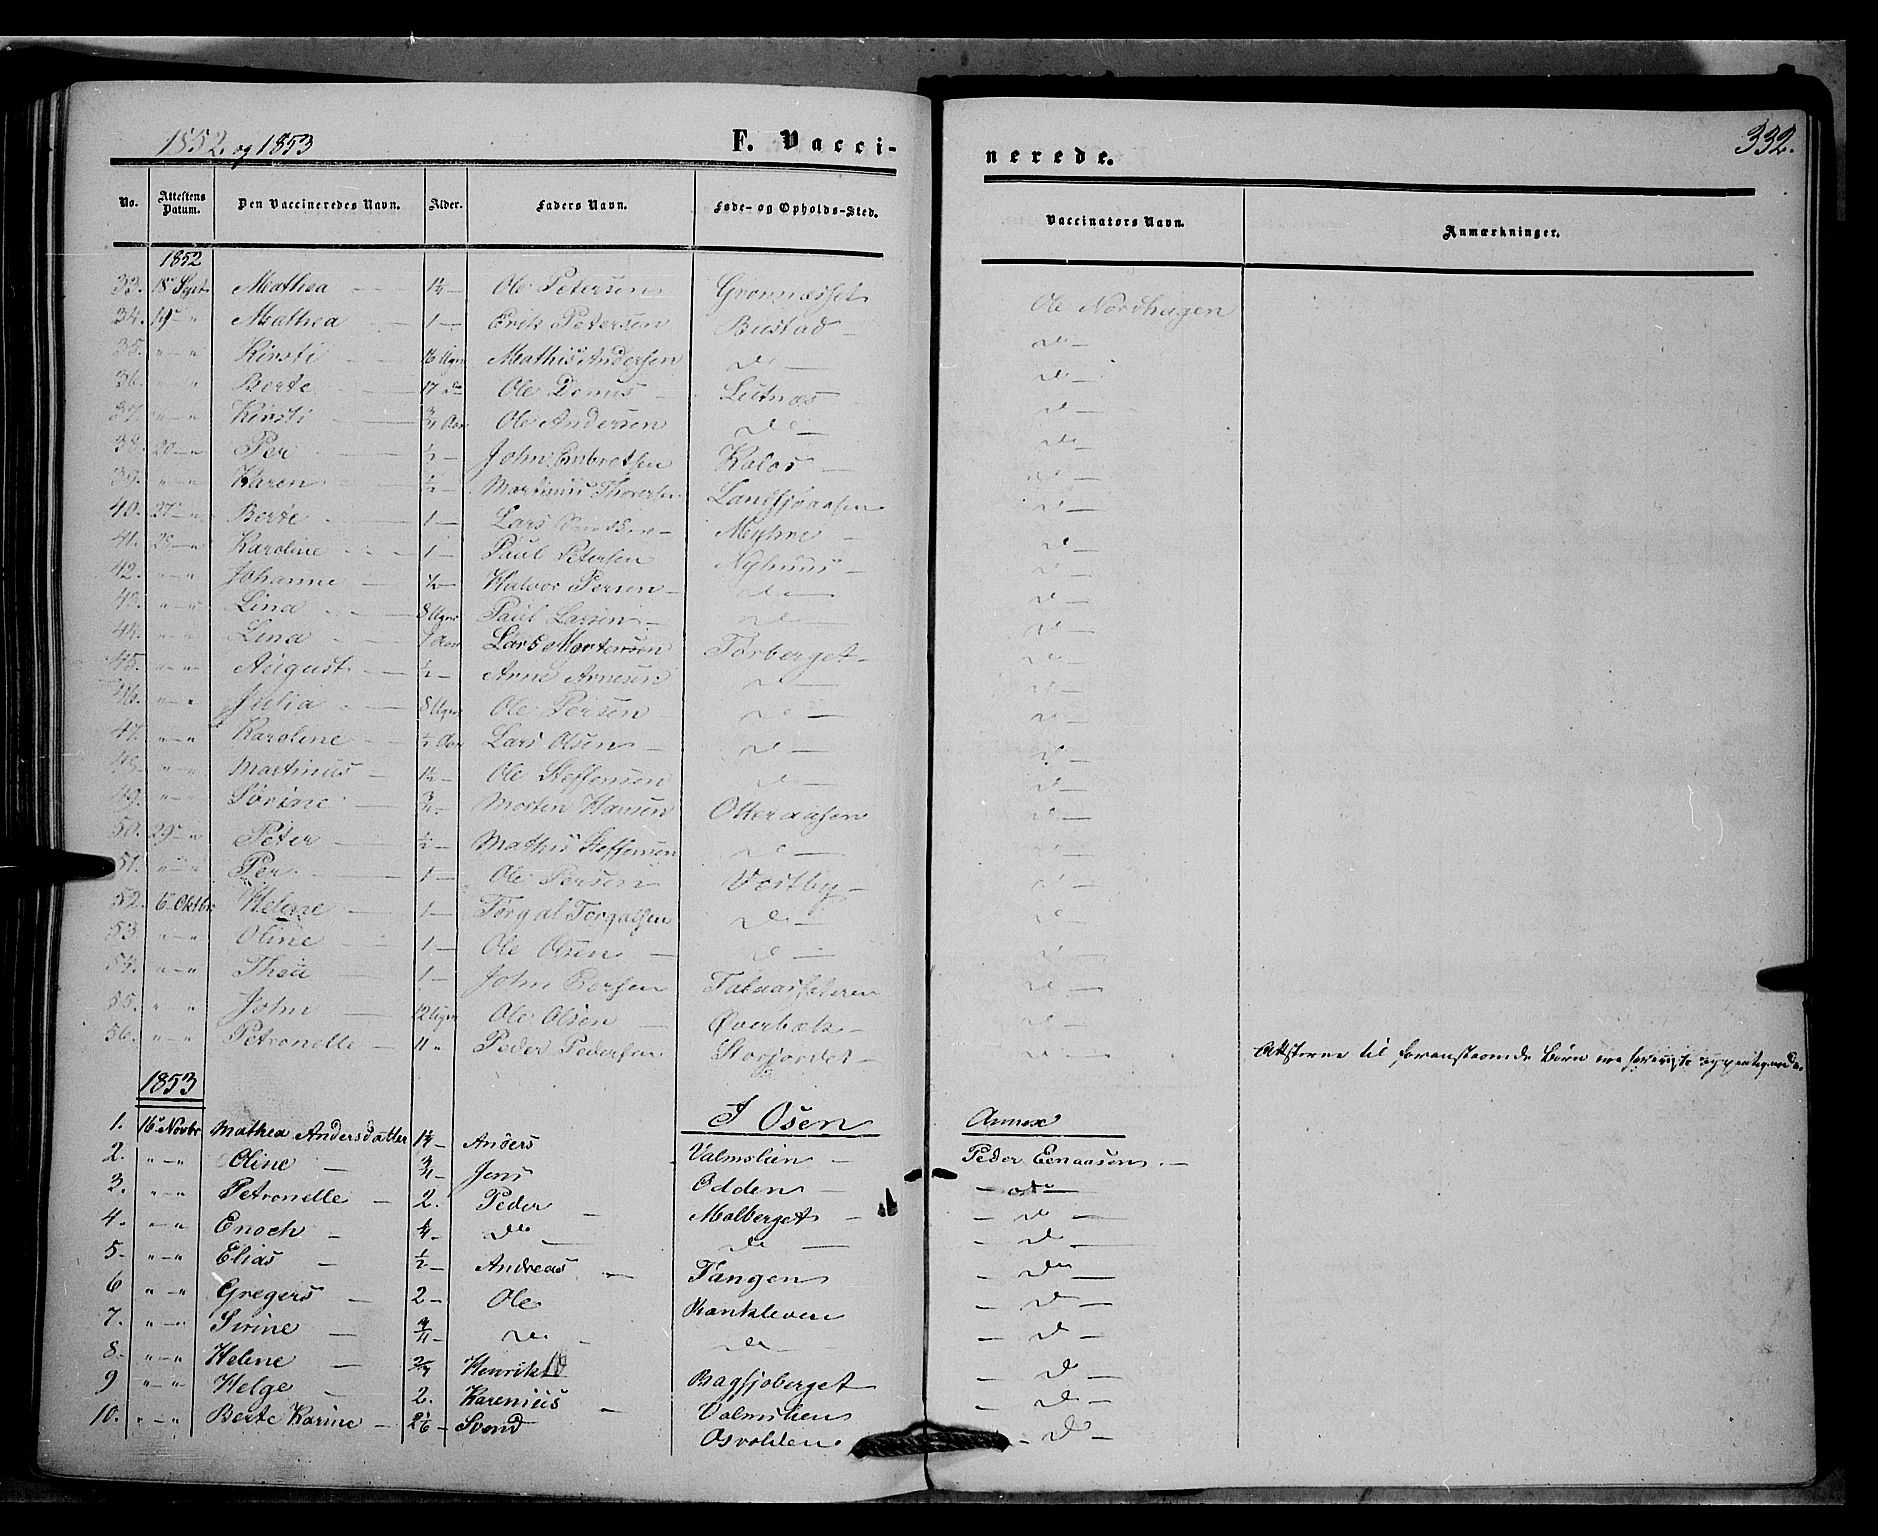 1852. og 1853 F. Vacci-nerede. 332.
No. Attestens Datum. Den Vaccineredes Navn. Alder. Faders Navn. Føde- og Opholds-Sted. Vaccinators Navn. Anmærkninger.
1852
33. 18 Sept Mathea 1¼ Ole Petersen Grønnæsset Ole Nordhagen
34. 19 " Mathea — 1 — Erik Petersen Bustad — do —
35. " — " Kirsti — 16 Uger Mathis Andersen do — do —
36. " — " Berte — 17 do Ole Demus Lutnæs do —
37. " — " Kirsti — ¾ Aar Ole Andersen do — do —
38. 20 — " Per — ½ — John Embretsen Kolos — do —
39. " — " Karen — ½ — Martinus Thoresen do —
40. 27 — " Berte — 1 — Lars Myhre — do —
41. 28 — " Karoline — 1 — Paul Petersen Nyhuus — do —
42. " — " Johanne — ½ — Halvor Persen — do — do —
43. " — " Lina — 8 Uger Paul Larsen — do — do —
44. " — " Lina — 1 Aar Lars Mortensen Tørberget — do —
45. " — " August — ½ — Arne Arnesen do — do —
46. " — " Julia — 8 Uger Ole Persen do — do —
47. " — " Karoline — ½ Aar Lars Olsen — do — do —
48. " — " Martinus — 1½ — Ole Steffensen do — do —
49. " — " Sørine — ¾ — Morten Hansen Otteraasen do —
50. 29 — " Peter — ½ — Mathis Steffensen do — do —
51. " — " Per — 1 — Ole Persen Vestby — do —
52. 6 Oktbr. Helene — 1 — Torgal Torgalsen do — do —
53. " — " Oline — 1 — Ole Olsen — do — do —
54. " — " Thea — 1 — John Persen do —
55. " " John — 12 Uger Ole Olsen — Øverbæk — do —
56. " — " Petronelle — 11 " Peder Pedersen Storjordet — do — Attesterne til foranstaaende Børn ere
1853
I Osen Annex
1. 16 Novbr Mathea Andersdatter 1¼ — Anders Valmslien — Peder Eenaasen —
2. " — " Oline — ¾ — Jens Odden — — do —
3. " — " Petronelle — 2. Peder — Molberget — — do —
4. " — " Enoch — ¼ — do — do — — do —
5. " — " Elias — ½ — Andreas — Tangen — do —
6 " — " Gregers — 2 — Ole Rankleven — do —
7. " — " Sirine — do — do — — do —
8. " — " Helene — Henrik Bagsjøberget — do —
9 " — " Helge — 2. Karenius — Valmslien — do —
10. " — " Berte Karine — 2 1/6 — Svend Osvolden. — do —